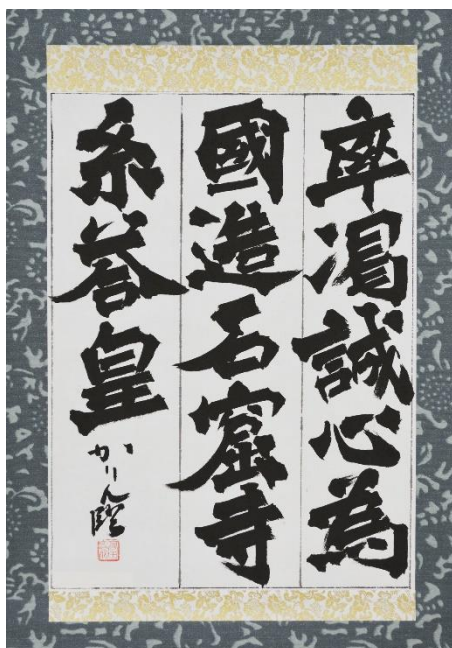 卒渴誠心為
國造石窟寺
系荅皇
かりん臨